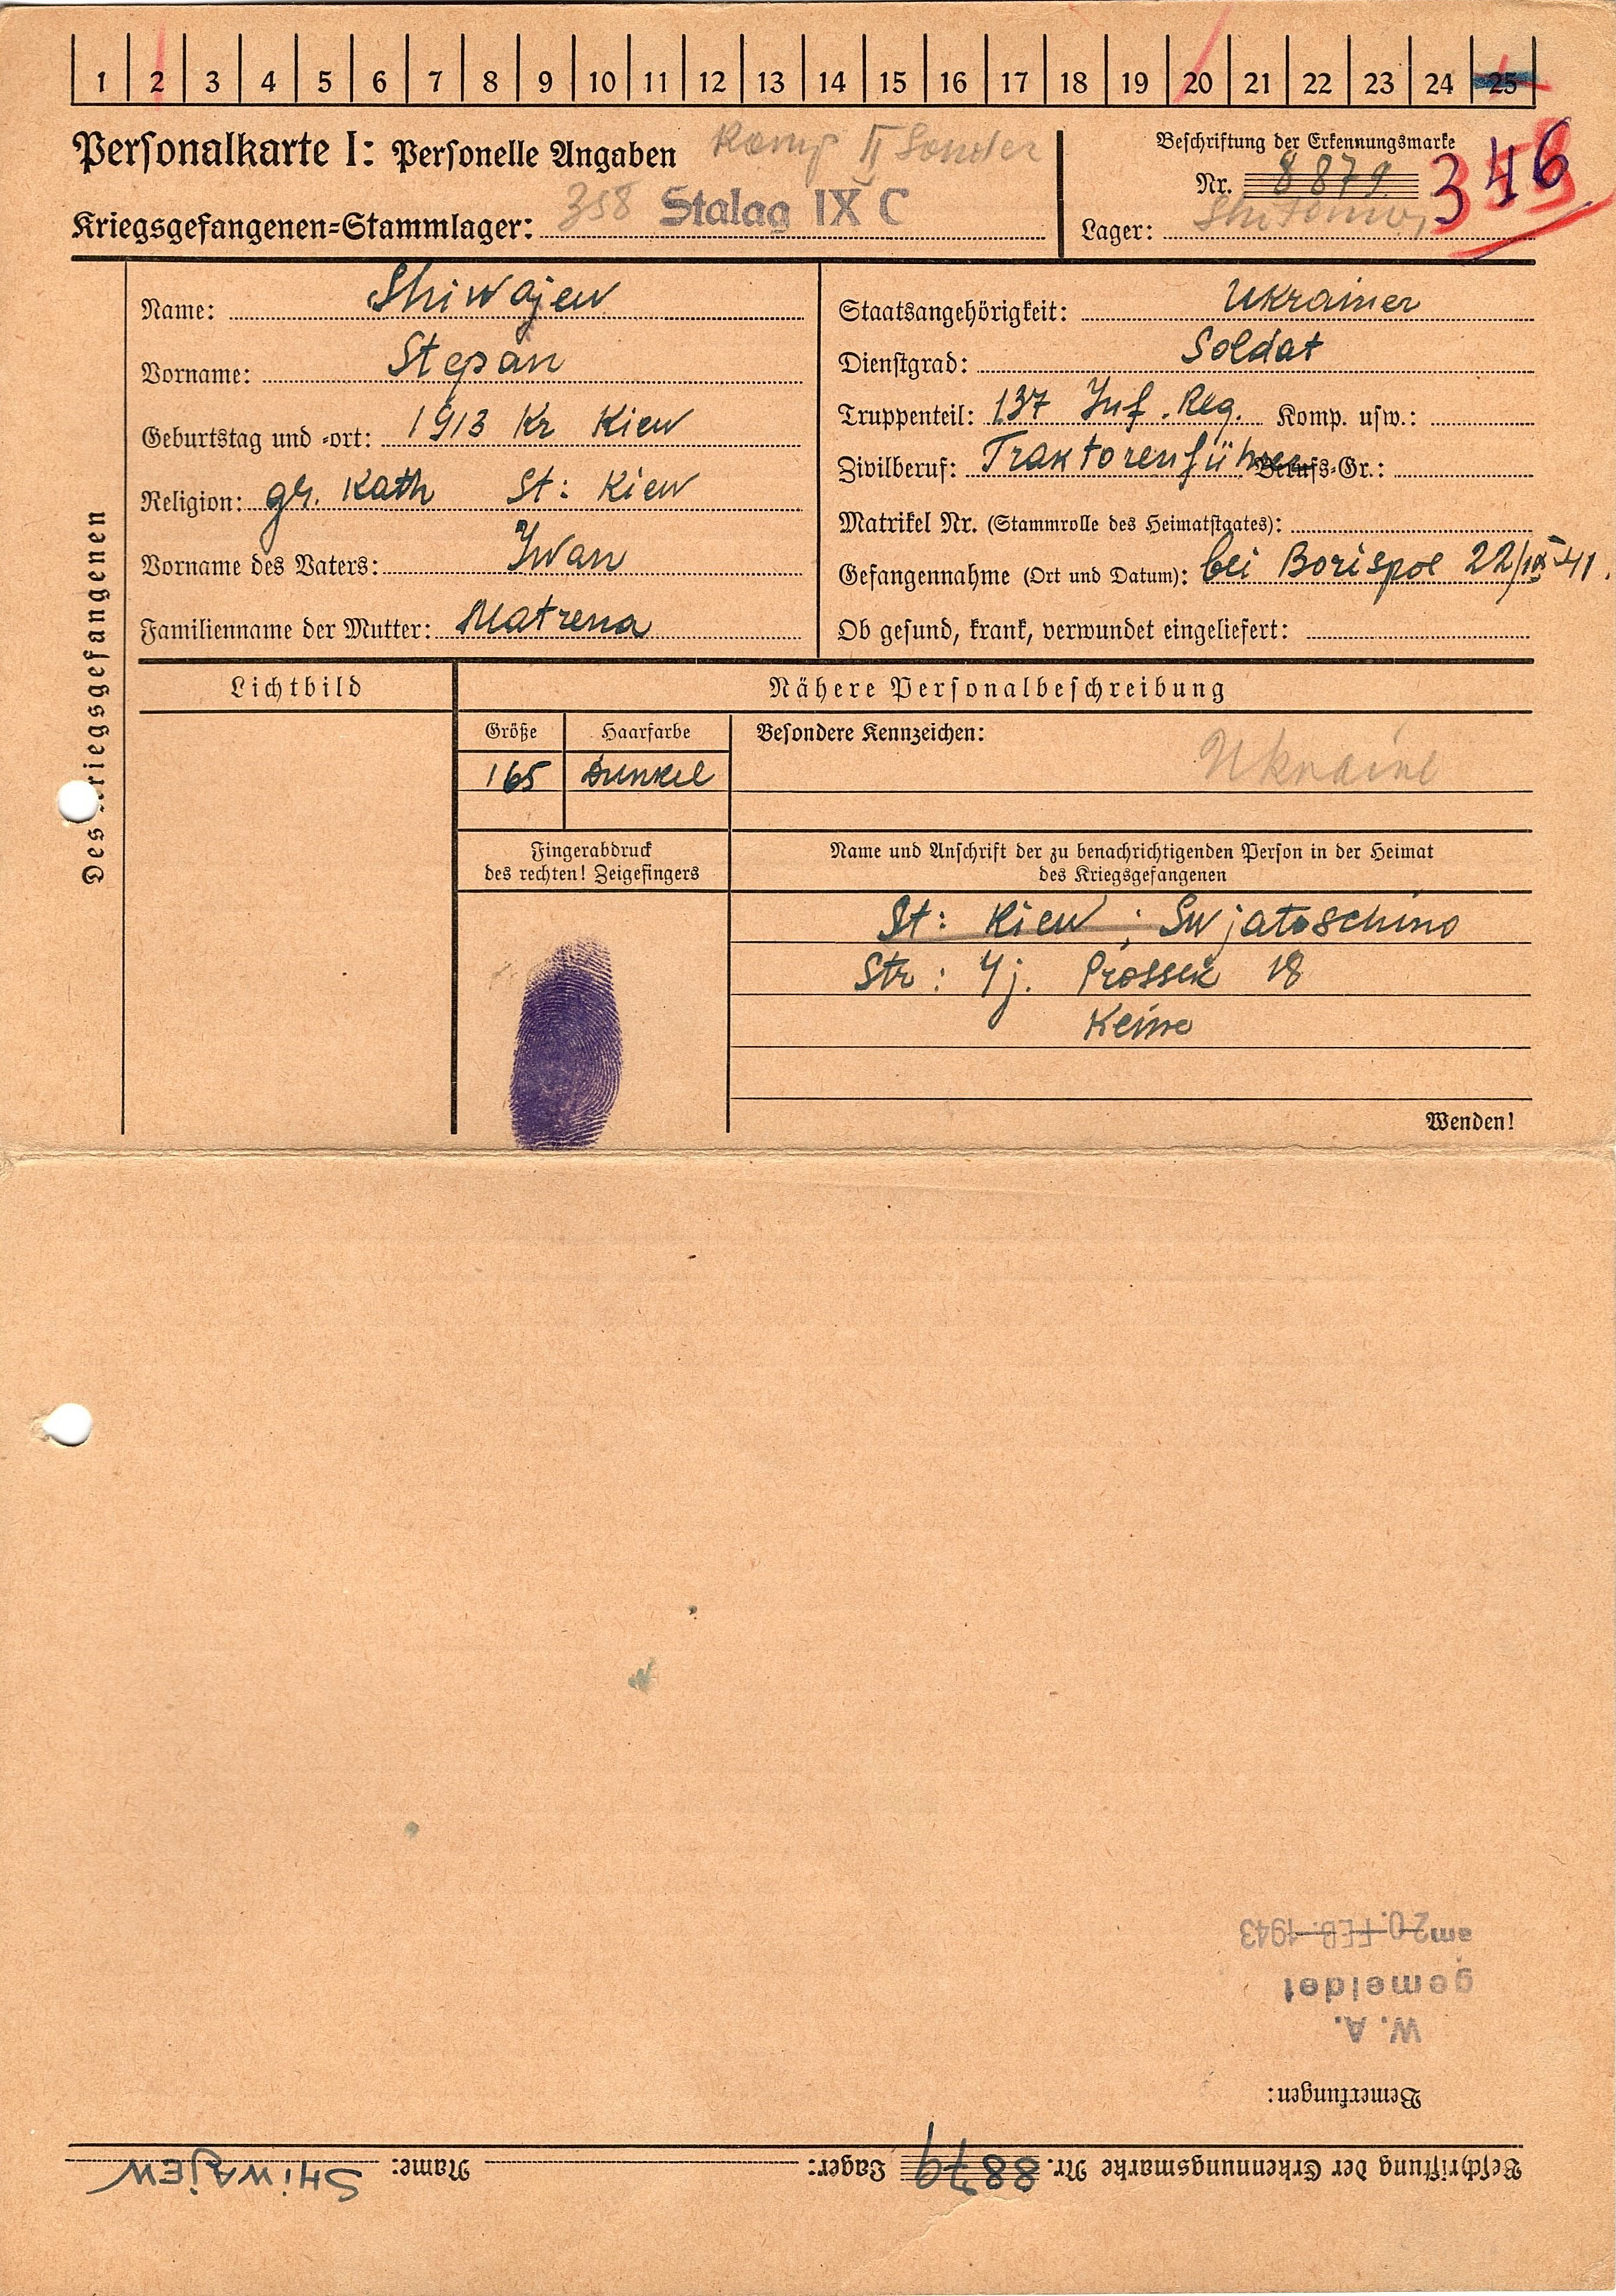 1 2 3 4 5 6 7 8 9 10 11 12 13 14 15 16 17 18 19 20 21 22 23 24 25
Personalkarte I: Personelle Angaben
Kriegsgefangenen-Stammlager: 358 Stalag IX C
Beschriftung der Erkennungsmarke
Nr. 8879 346
Lager:
Des Kriegsgefangenen
Name: Shiwajew
Vorname: Stepan
Geburtstag und -ort: 1913 Kr Kiew
Religion: gr. Kath St: Kiew
Vorname des Vaters: Iwan
Familienname der Mutter: Matrena
Staatsangehörigkeit: Ukrainer
Dienstgrad: Soldat
Truppenteil: 137 Inf. Reg. Komp. usw.:
Zivilberuf: Traktorenführer Berufs-Gr.:
Matrikel Nr. (Stammrolle des Heimatstaates):
Gefangennahme (Ort und Datum): bei Borispol 22/IX-41.
Ob gesund, krank, verwundet eingeliefert:
Lichtbild
Nähere Personalbeschreibung
Größe Haarfarbe
165 Dunkel
Besondere Kennzeichen:
Ukraine
Fingerabdruck
des rechten! Zeigefingers
Name und Anschrift der zu benachrichtigenden Person in der Heimat
des Kriegsgefangenen
St: Kiew; Swjatoschino
Str: 4j. Prossek 18
Keine
Wenden!
Beschriftung der Erkennungsmarke Nr. 8879 Lager: Name: SHiWAJEW
Bemerkungen:
W. A.
gemeldet
am 20. FEB. 1943